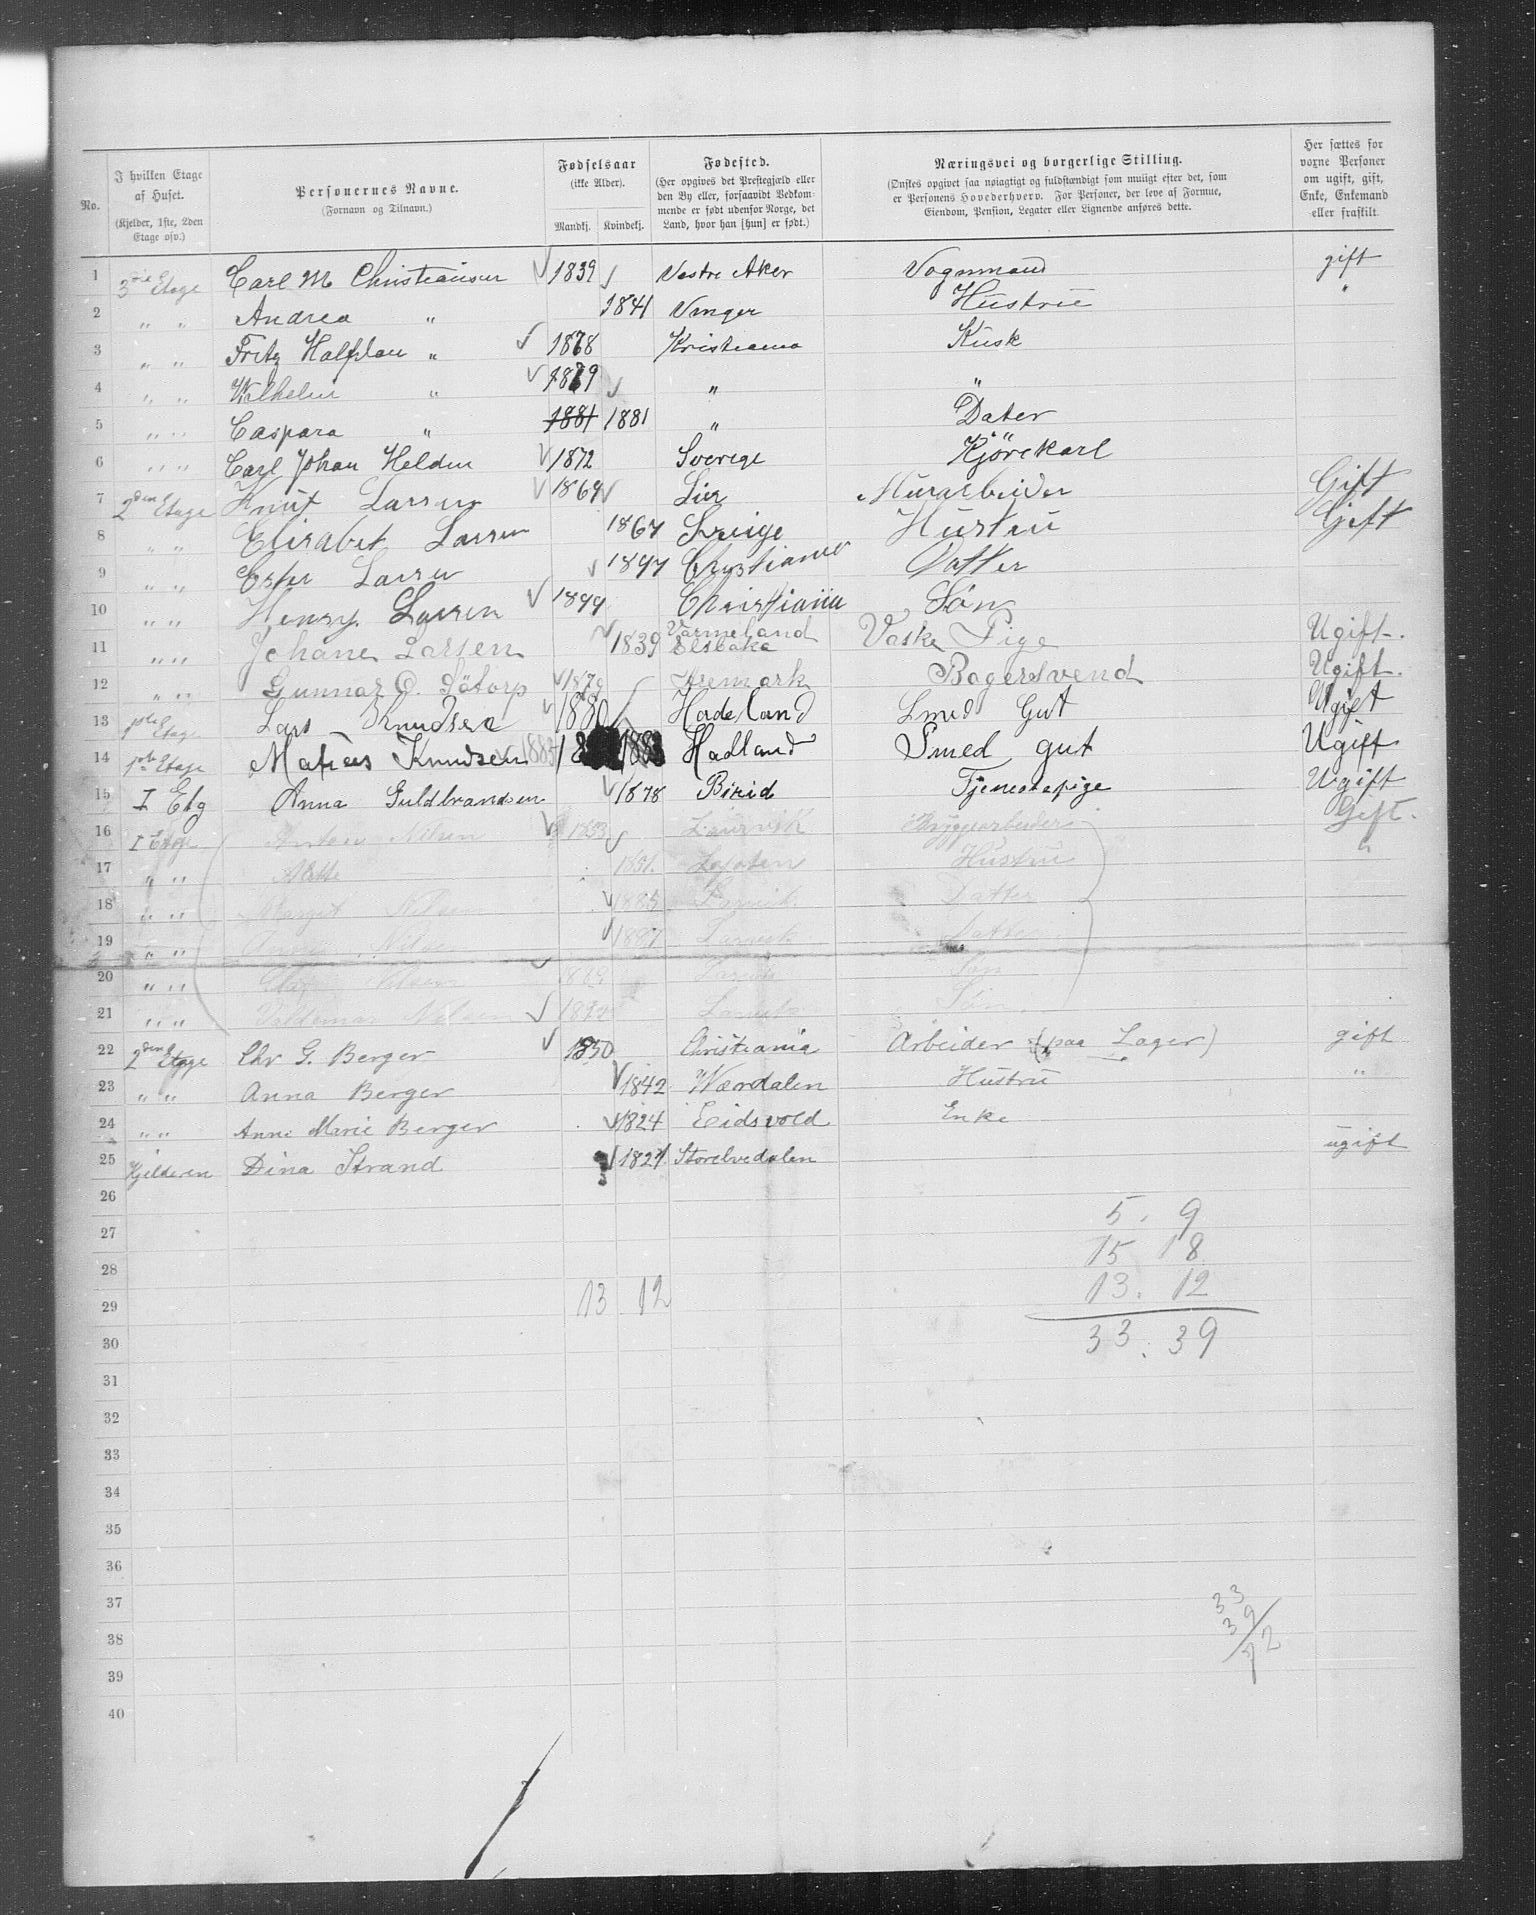 No.
I hvilken Etage af Huset.
(Kjelder, 1ste, 2den Etage osv.)
Personernes Navne.
(Fornavn og Tilnavn.)
Fødselsaar
(ikke Alder).
Mandkj. Kvindekj.
Fødested.
(Her opgives det Prestegjæld eller den By eller, forsaavidt Vedkommende er født udenfor Norge, det Land, hvor han [hun] er født.)
Næringsvei og borgerlige Stilling.
(Ønskes opgivet saa nøiagtigt og fuldstændigt som muligt efter det, som er Personens Hovederhverv. For Personer, der leve af Formue, Eiendom, Pension, Legater eller Lignende anføres dette.
Her sættes for voxne Personer om ugift, gift, Enke, Enkemand eller fraskilt.
1 3die Etage Carl M Christiansen 1839 Vestre Aker Vognmand gift
2 " " Andrea " 1841 Vinger Hustrue "
3 " " Fritz Halfdan " 1878 Kristiania Kusk
4 " " Wilhelm " 1879 " "
5 " " Caspara " 1881 1881 " Dater
6 " " Carl Johan Helden 1872 Sverige Kjörekarl
7 2den Etage Knut Larsen 1869 Lier Murarbeider Gift
8 " " Elisabet Larsen 1867 Sveige Hustru Gift
9 " " Ester Larsen 1897 Christiania Datter
10 " " Henry Larsen 1899 Christiania Sön
11 " " Johane Larsen 1839 Värmeland Elsbaka Vaske Pige Ugift.
12 " " Gunnar O. Sötorp 1879 Aremark Bagersvend Ugift.
13 1ste Etag Lars Knudsen 1880 Hadeland Smed Gut Ugift
14 1ste Etage Matias Knudsen 1883 Hadland Smed gut Ugift
15 I Etg Anna Guldbrandsen 1878 Birid Tjenestepige Ugift
16 I Etage Anton Nilsen 1853 Laurvik Bryggearbeider Gift.
17 " " 1851. Hustru "
18 " " Margit Nilsen 1885 Larvik Datter
19 " " Nilsen 1887 Larvik Datter
20 " " Nilsen 1889 Larvik Sön
21 " " Valdemar Nilsen Larvik Sön
22 2den Etage Chr G. Berger 1850 Christiania Arbeider (paa Lager) gift
23 " " Anna Berger 1842 Wærdalen Hustru "
24 " " Anne Marie Berger 1824 Eidsvold Enke
25 Kjelderen Dina Strand 1827 Storelvedalen ugift
26
27
28
29
30
31
32
33
34
35
36
37
38
39
40
13 12
5. 9
15 18
13. 12
33. 39
33
39
72